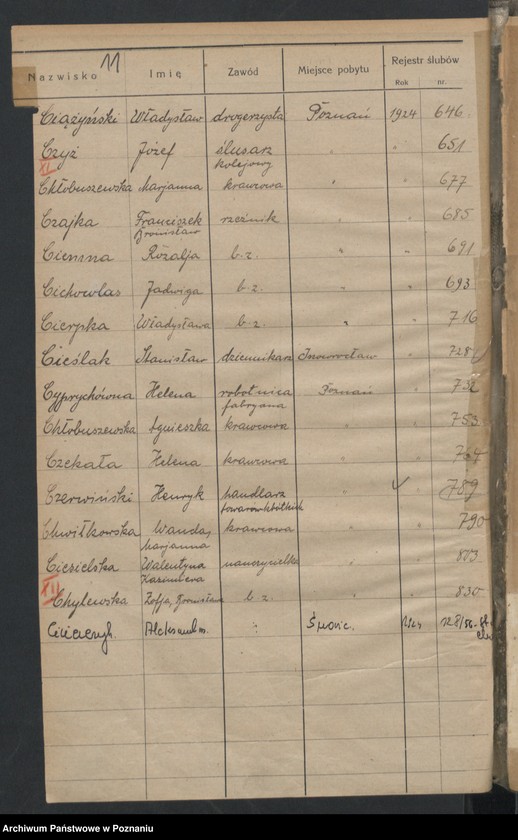 11
Nazwisko Imię Zawód Miejsce pobytu Rejestr ślubów
Rok nr.
Ciążyński Władysław drogerzysta Poznań 1924 646
Czyż Józef ślusarz " " 651
kolejowy
XI
Chłobuszewska Marjanna krawcowa " " 677
Czajka Franciszek rzeźnik " " 685
Bronisław
Ciemna Rozalja b.z. " " 691
Cichowlas Jadwiga b.z. " " 693
Cierpka Władysława b.z. " " 716
Cieślak Stanisław dziennikarz Inowrocław " 728
Cyprychówna Helena robotnica Poznań " 732
fabryczna
Chłobuszewska Agnieszka krawcowa " " 753
Czekała Helena krawcowa " " 764
Czerwiński Henryk handlarz " " 789
towarów krótkich
Chwiłkowska Wanda, krawcowa " " 790
Marjanna
Ciesielska Walentyna nauczycielka " " 803
Kazimiera
XII
Chylewska Zofja, Bronisława b.z. " " 830
1924
Archiwum Państwowe w Poznaniu